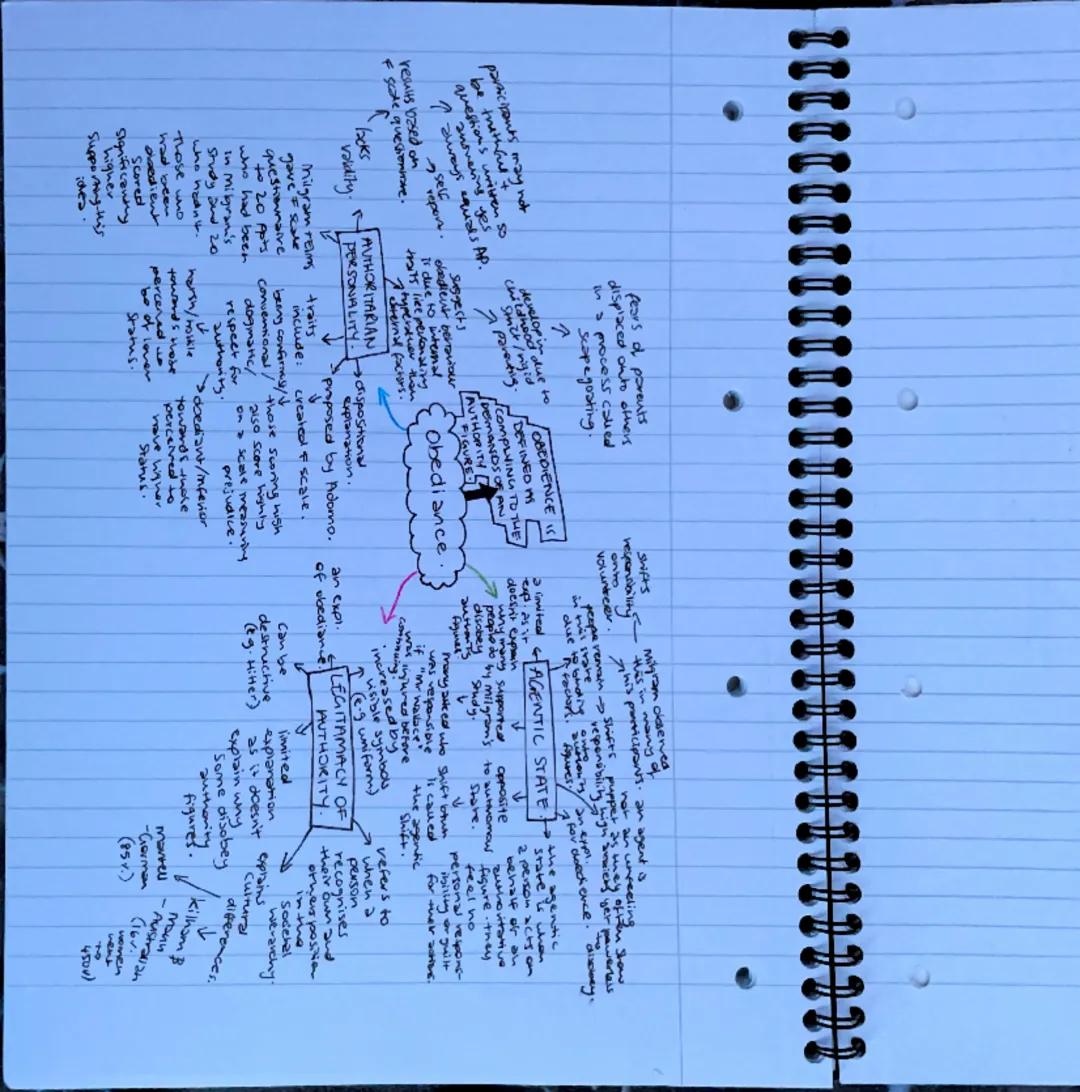 Obediance.
OBEDIENCE IS
DEFINED AS
COMPLYING TO THE
DEMANDS OF AN
AUTHORITY
FIGURE.
AUTHORITARIAN
PERSONALITY.
lacks
validity.
results based on
F scale questionnaire.
self
report.
participants may not
be truthful +
questions written so
answering yes
always equals AP.
suggests
obedient behaviour
is due to internal
traits like personality
type rather than
external factors.
develop in due to
childhood due to
strict/rigid
parenting.
fears of parents
displaced onto others
in a process called
scapegoating.
dispositional
explanation.
proposed by Adorno.
created F scale.
those scoring high
also score highly
on a scale measuring
prejudice.
traits
include:
being conformist/
conventional/
dogmatic/
respect for
authority.
harsh/hostile
towards those
perceived to
be of lower
status.
obedient/inferior
towards those
perceived to
have higher
status.
milgram + elms
gave F scale
questionnaire
to 20 ppts
who had been
in milgram's
study and 20
who hadn't.
Those who
had been
obedient
scored
significantly
higher
supporting this
idea.
AGENTIC STATE.
the agentic
state is when
a person acts on
behalf of an
authoritative
figure - they
feel no
personal respons-
ibility or guilt
for their actions.
an expl.
for obedience.
an agent is
not an unfeeling
puppet as they often show
high anxiety yet powerless
to
disobey.
shifts
responsibility
onto
authority
figures.
people remain
in this state
due to binding
factors.
milgram observed
this in many of
his participants.
shifts
responsibility
onto
volunteerer.
a limited
exp. as it
doesn't explain
why many
people do
disobey
authority
figures.
supported
by milgram's
study.
many asked who
was responsible
if "Mr. Wallace"
was injured before
continuing.
opposite
to autonomous
state.
shift between
is called
the agentic
shift.
LEGITAMACY OF
AUTHORITY.
an expl.
of obedience.
increased by
visible symbols
(e.g uniform)
refers to
when a
person
recognises
their own and
others position
in the
societal
hierarchy.
can be
destructive
(e.g. Hitler)
limited
explanation
as it doesn't
explain why
some disobey
authority
figures.
explains
cultural
differences.
Kilham $
Mann
- Australian
(16v.
women
went
to
450v)
mantell
- German
(85v.)